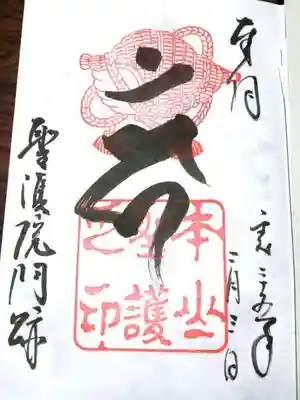 奉拝
二月三日
本山
聖護
之印
聖護院門跡